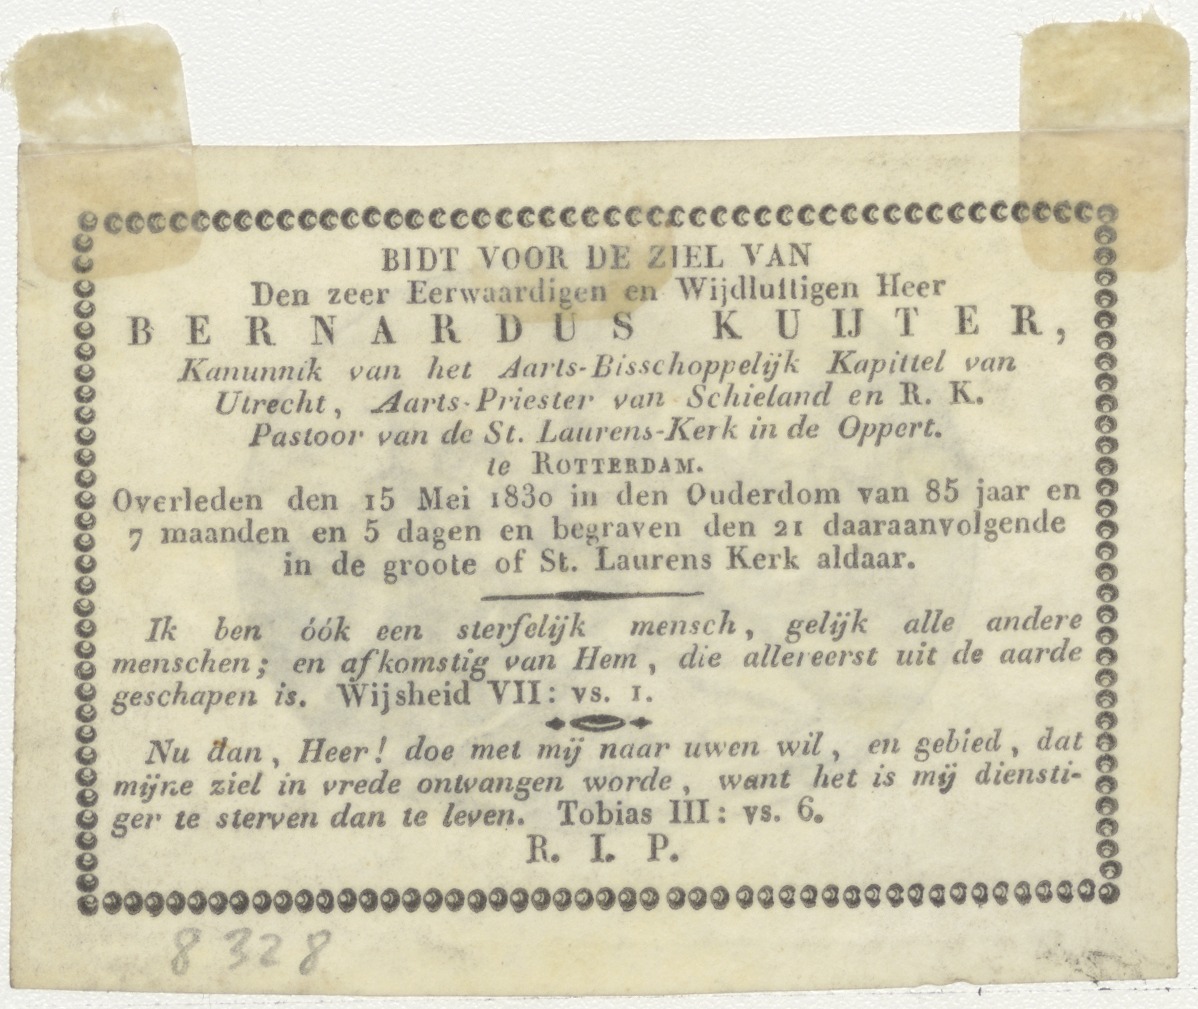 BIDT VOOR DE ZIEL VAN
Den zeer Eerwaardigen en Wijdluftigen Heer
BERNARDUS KUIJTER,
Kanunnik van het Aarts-Bisschoppelijk Kapittel van
Utrecht, Aarts-Priester van Schieland en R. K.
Pastoor van de St. Laurens-Kerk in de Oppert.
te ROTTERDAM.
Overleden den 15 Mei 1830 in den Ouderdom van 85 jaar en
7 maanden en 5 dagen en begraven den 21 daaraanvolgende
in de groote of St. Laurens Kerk aldaar.
Ik ben óók een sterfelijk mensch, gelijk alle andere
menschen; en afkomstig van Hem, die allereerst uit de aarde
geschapen is. Wijsheid VII: vs. 1.
Nu dan, Heer! doe met mij naar uwen wil, en gebied, dat
mijne ziel in vrede ontvangen worde, want het is mij diensti-
ger te sterven dan te leven. Tobias III: vs. 6.
R. I. P.
8328